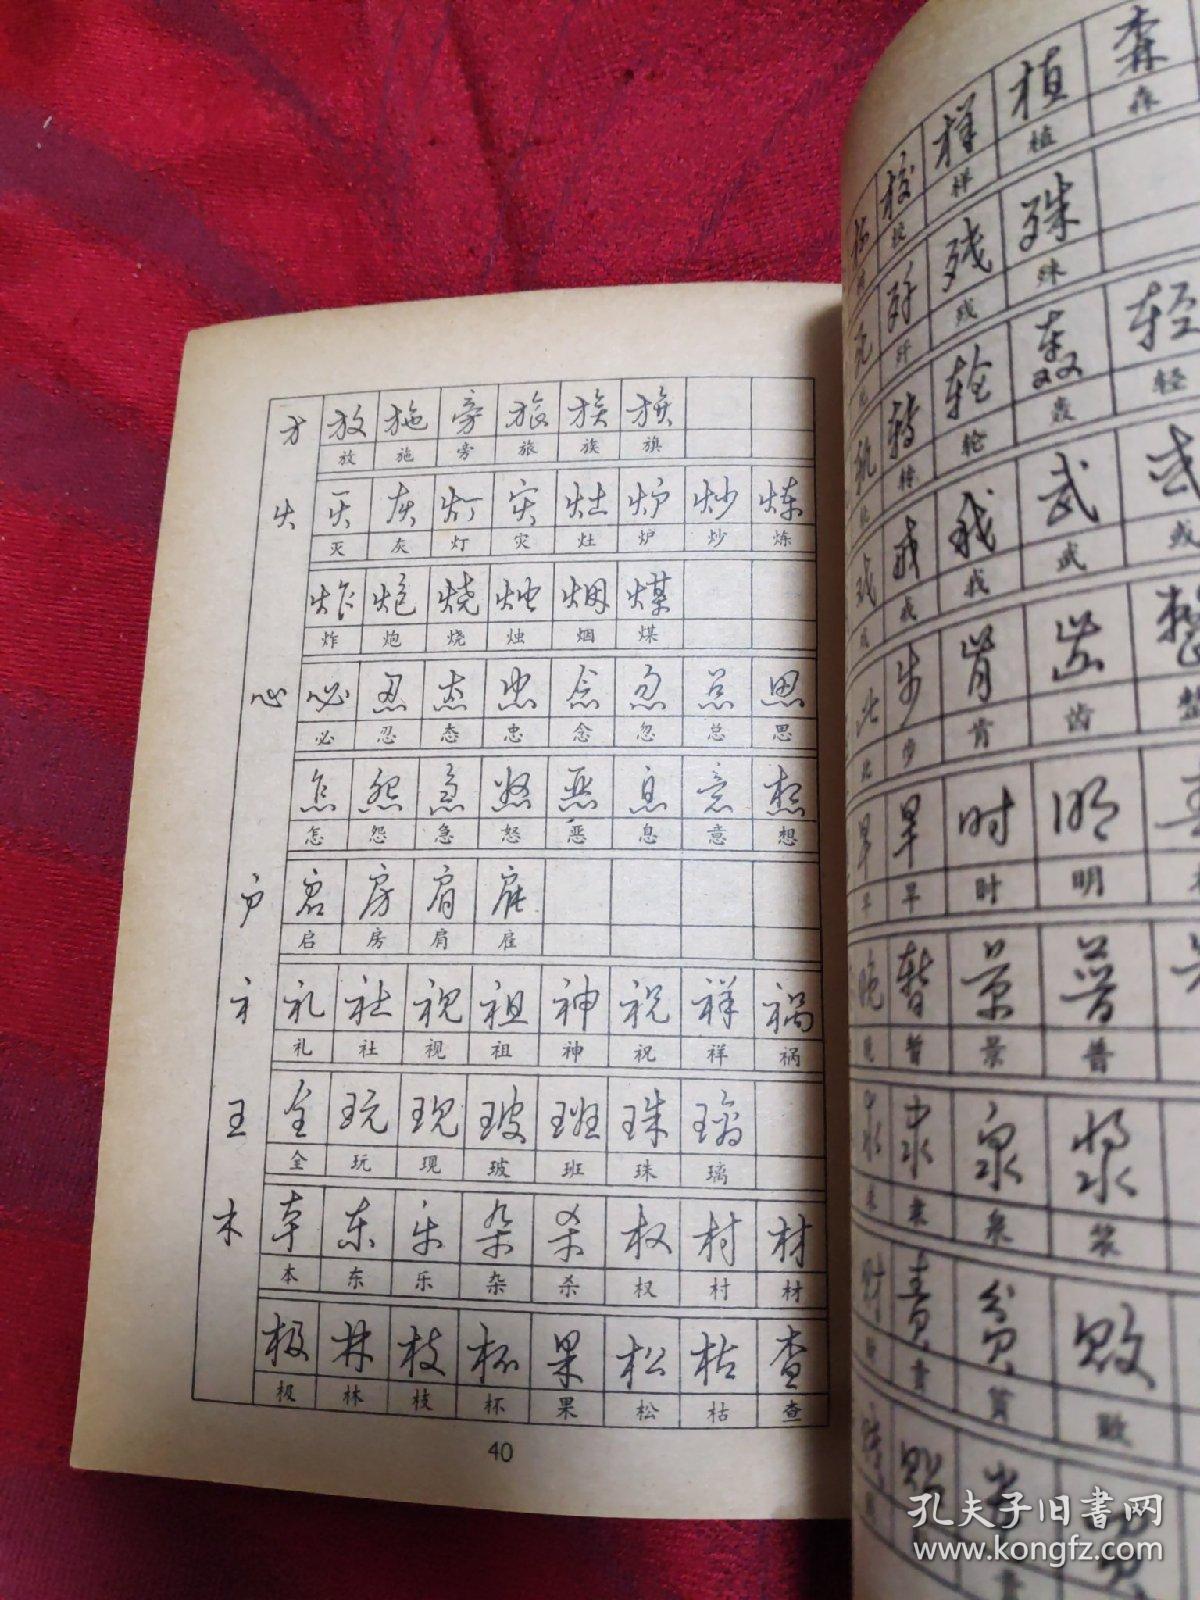 方 放 施 旁 旅 族 旗
放 施 旁 旅 族 旗
火 灭 灰 灯 灾 灶 炉 炒 炼
灭 灰 灯 灾 灶 炉 炒 炼
炸 炮 烧 烛 烟 煤
炸 炮 烧 烛 烟 煤
心 必 忍 态 忠 念 忽 总 思
必 忍 态 忠 念 忽 总 思
怎 怨 急 怒 恶 息 意 想
怎 怨 急 怒 恶 息 意 想
户 启 房 肩 雇
启 房 肩 雇
礻 礼 社 视 祖 神 祝 祥 祸
礼 社 视 祖 神 祝 祥 祸
王 全 玩 现 玻 班 珠 璃
全 玩 现 玻 班 珠 璃
木 本 东 乐 杂 杀 权 村 材
本 东 乐 杂 杀 权 村 材
极 林 枝 杯 果 松 枯 查
极 林 枝 杯 果 松 枯 查
40
校 样 植 森
校 样 植 森
歼 残 殊
歼 残 殊
轨 转 轮 轰 轻
转 轮 轰 轻
戒 我 武 或
戒 我 武 或
此 步 肯 齿 整
此 步 肯 齿 整
早 旱 时 明
早 旱 时 明
晚 暂 景 普
晚 暂 景 普
泉 浆
泉 浆
财 责 贫 败
责 贫 败
孔夫子旧书网
www.kongfz.com